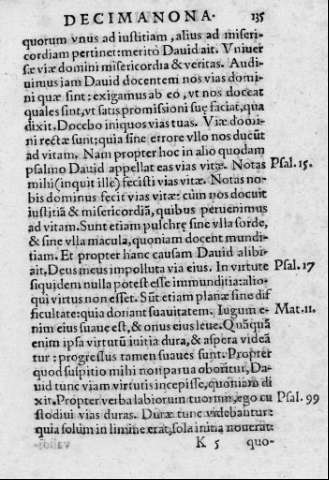 DECIMANONA. 135
quorum vnus ad iustitiam, alius ad miseri-
cordiam pertinet: meritò Dauid ait. Vniuer
sæ viæ domini misericordia & veritas. Audi-
uimus iam Dauid docentem nos vias domi-
ni quæ sint: exigamus ab eo, vt nos doceat
quales sint, vt satis promissioni suę faciat, qua
dixit. Docebo iniquos vias tuas. Viæ domi-
ni rectæ sunt: quia sine errore vllo nos ducūt
ad vitam. Nam propter hoc in alio quodam
psalmo Dauid appellat eas vias vitæ. Notas Psal. 15.
mihi (inquit ille) fecisti vias vitæ. Notas no-
bis dominus fecit vias vitæ: cùm nos docuit
iustitiā & misericordiā, quibus peruenimus
ad vitam. Sunt etiam pulchrę sine vlla sorde,
& sine vlla macula, quoniam docent mundi-
tiam. Et propter hanc causam Dauid alibi
ait, Deus meus impolluta via eius. In virtute Psal. 17
siquidem nulla potest esse immunditia: alio-
qui virtus non esset. Sūt etiam planæ sine dif
ficultate: quia donant suauitatem. Iugum e- Mat. 11.
nim eius suaue est, & onus eius leue. Quāquā
enim ipsa virtutū initia dura, & aspera videā
tur: progressus tamen suaues sunt. Propter
quod suspitio mihi non parua oboritur, Da-
uid tunc viam virtutis incepisse, quoniam di
xit. Propter verba labiorum tuorum, ego cu Psal. 99
stodiui vias duras. Duræ tunc videbantur:
quia solùm in limine erat, sola initia nouerat:
K 5 quo-